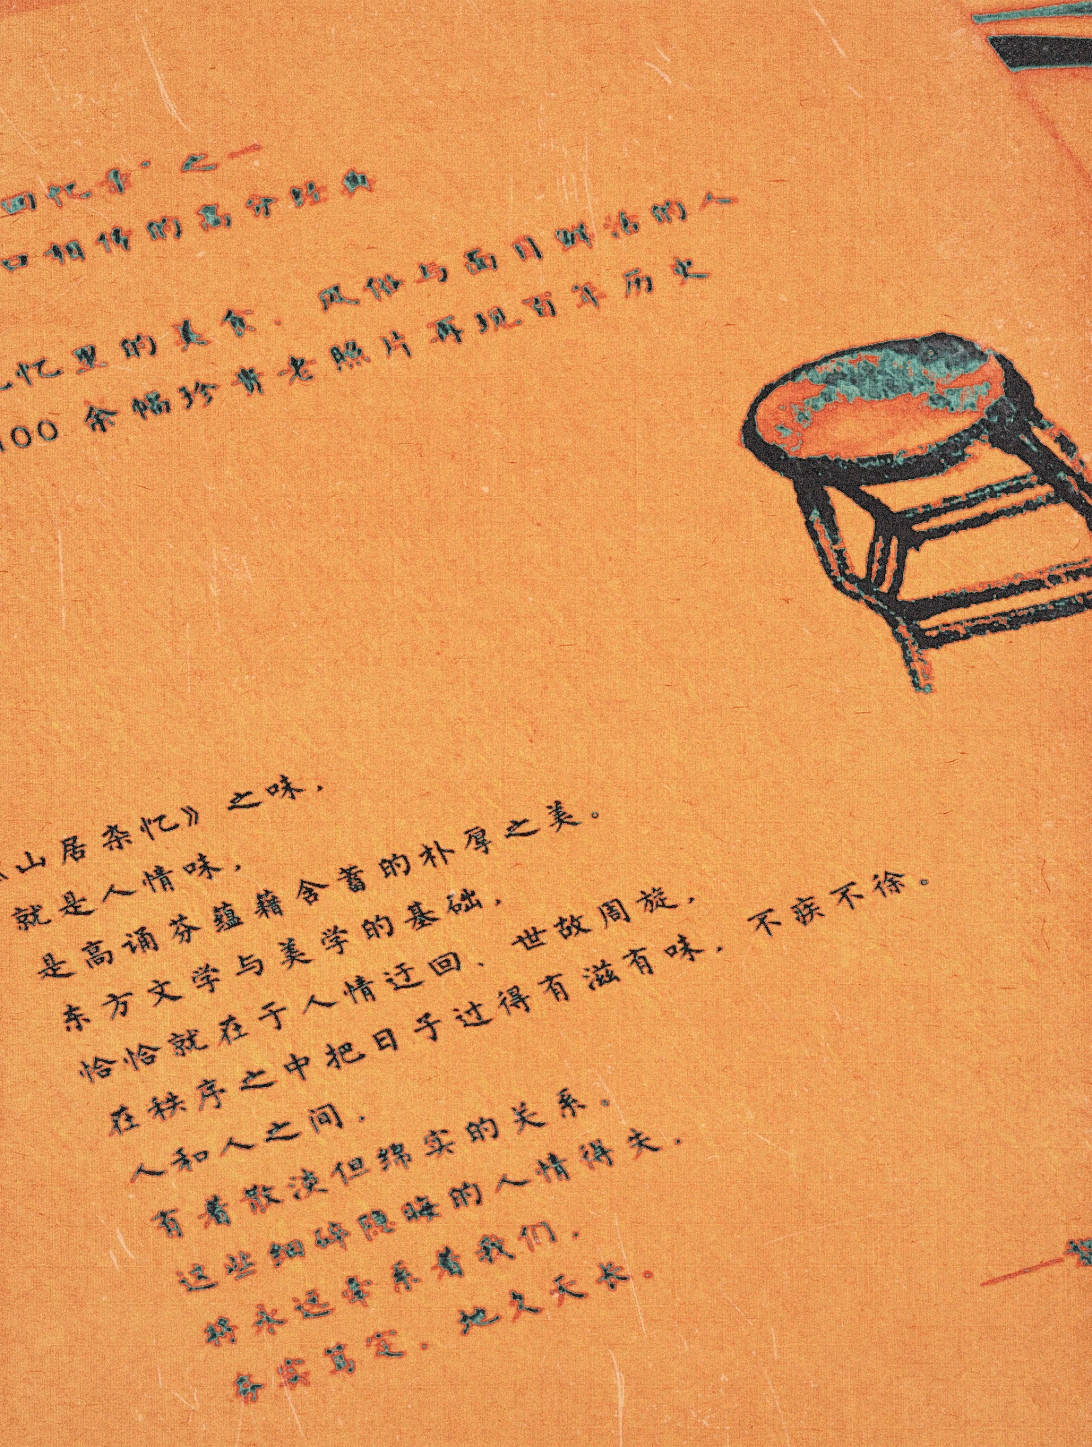 回忆录”之一
口相传的高分经典
忆里的美食、风俗与面目鲜活的人
100余幅珍贵老照片再现百年历史
《山居杂忆》之味，
就是人情味，
是高诵芬蕴藉含蓄的朴厚之美。
东方文学与美学的基础，
恰恰就在于人情迂回、世故周旋，
在秩序之中把日子过得有滋有味，不疾不徐。
人和人之间，
有着散淡但绵实的关系。
这些细碎隐晦的人情得失，
将永远牵系着我们，
夯实笃定，地久天长。